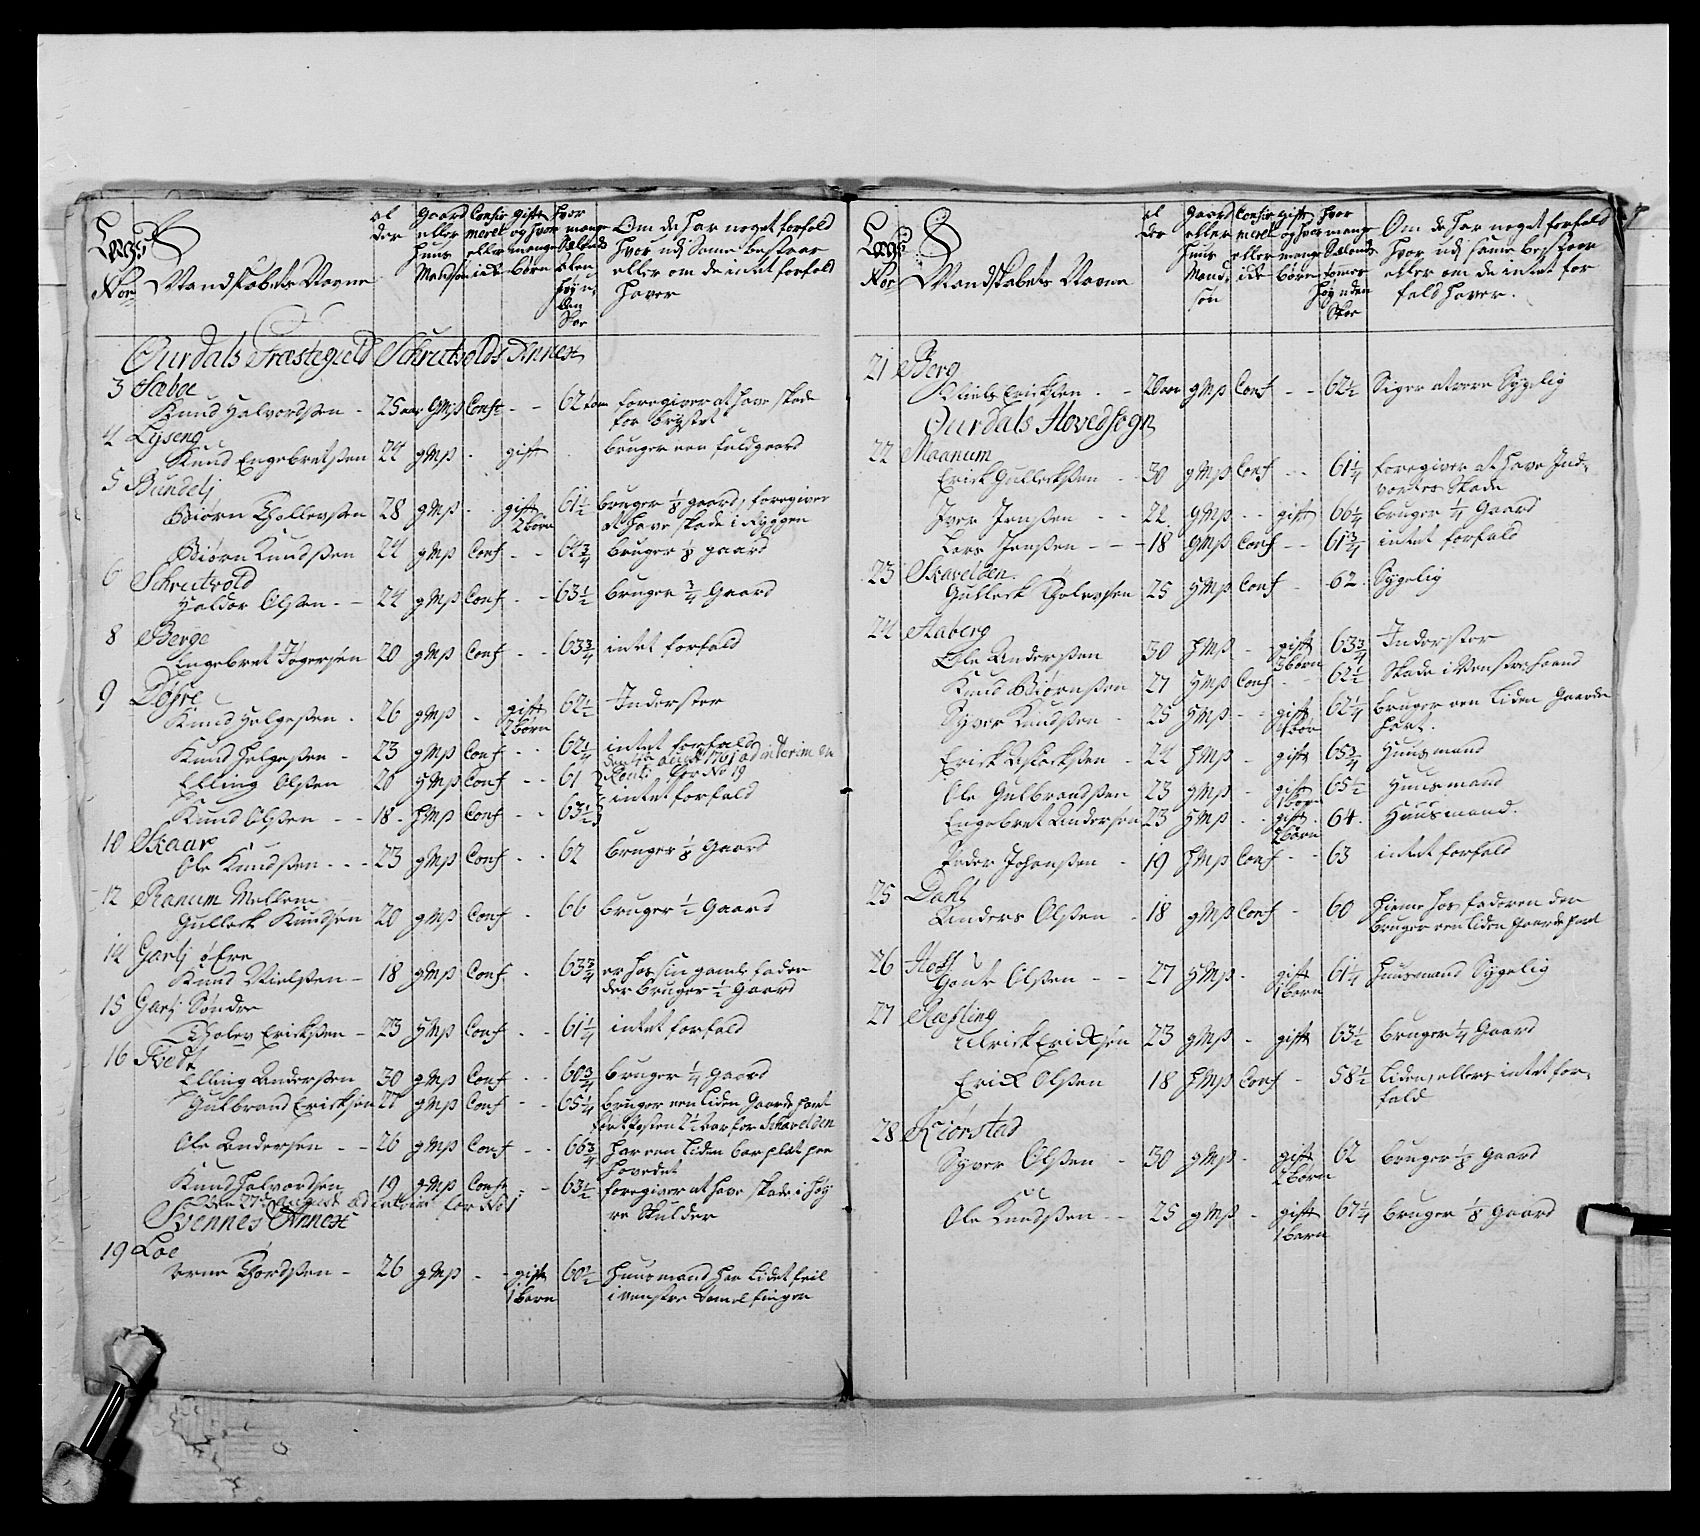 Lægs
Nor
Mandskabets Navne
al
der
gaard
eller
huus
Mandsøn
Confir
meret
eller
ikke
gift
og hvor
mange
børn
hvor
mange
Sælands
høy u,
den
Skoe
Om de har noget forfald
hvor udj samme bestaar
eller om de intet forfald
haver
Ourdals Præstegield Schrutvolds Annex
3 Sæbøe
Knud Halvordsen - 25 aar gMß Conft - - 62 tom foregiver at have skade
for brystet
4 Lyseng
Knud Engebretsen 24 gMß - gift bruger een fuldgaard
5 Bundelj
Biørn Thollevsen 28 gMß - gift 2 børn 61 1/2 bruger 1/8 gaard, foregiver
at have skade i Ryggen
Biørn Knudsen 24 gMß Conf - - 64 3/4 bruger 1/8 gaard
6 Schrutvold
Haldor Olsen - - 24 gMß Conf - - 63 1/2 bruger 3/4 Gaard
8 Berge
Engebret Jøgersen 20 gMß Conf - - 63 3/4 intet forfald
9 Døfre
Knud Helgesen - 26 gMß - gift 2 børn 62 1/2 Inderster
Knud Helgesen - 23 gMß Conf - - 62 1/4 intet forfald
1761 ad interim
Elling Olsen 20 hMß Conf - - 61 for No 19
Knud Olsen - - 18 - hMß Conf - - 63 1/2 intet forfald
10 Skaar
Ole Knudsen - - - 23 gMß Conf - - 62 bruger 1/8 Gaard
12 Ranum Mellem
Gulleck Knudsen 20 gMß Conf - 66 bruger 1/2 Gaard
14 Garlj øfre
Knud Nielsen - 18 gMß Conf - 63 3/4 er hos sin gamle fader
der bruger 1/2 Gaard
15 Garlj Søndre
Tholev Ericksen - 23 hMß Conf - - 61 1/4 intet forfald
16 Qvedt
Elling Andersen 30 gMß Conf - - 60 3/4 bruger 1/4 Gaard
Gulbrand Ericksen 27 gMß Conf - - 65 1/4 bruger een liden Gaarde part
2 1/2 aar for Schavelden
Ole Andersen - - 26 gMß Conf - - 66 3/4 har een liden bar plet paa
hovedet
Knud Halvordsen 19 gMß Conft - 63 1/2 foregiver at have skade i høy
den 27de August ad interim for No 1
re Skulder
Svennes Annex
19 Loe
Arne Thordsen - 26 gMß - - gift 1 barn 60 1/2 huusmand har lidet feil
i venstre Tomelfinger
Lægs
Nor
Mandskabets Navne
al
der
gaard
eller
huus
Mand,
søn
Confir
meret
eller
ikke
gift
og hvor
mange
børn
hvor
mange
Sælands
tomer
høy uden
Skoe
Om de har noget forfald
hvor udj samme bestaar
eller om de intet for
fald haver.
21 Berg
Niels Ericksen - - 20 aar gMß Conf - - 62 1/2 Siger at være Sygelig
Ourdals Hovedsogn
22 Maanum
Erick Gullecksen - - 30 gMß Conf - - 61 1/4 foregiver at have Ind,
vortes Skade
Iver Jensen - - 22 gMß - - gift 66 1/4 bruger 1/4 Gaard
Lars Jensen - - - 18 gMß Conf - - 61 3/4 intet forfald
23 Skavelden
Gulleck Tholevsen 25 hMß Conf - 62 Sygelig
24 Aaberg
Ole Andersen 30 hMß - - gift 3 børn 63 3/4 Inderster
Knud Biørnsen 27 hMß Conf - 62 1/2 Skade i Venstre haand
Syver Knudsen - 25 hMß - - gift 1 bør 62 1/4 bruger een liden Gaarde
part.
Erick Aslacksen - 22 hMß - gift 65 3/4 Huusmand
Ole Gulbrandsen 23 gMß - - gift 1 bør 65 1/2 Huusmand
Engebret Andersøn 23 hMß - - gift 2 børn 64 - Huusmand.
Peder Johansen - 19 hMß Conf - - 63 intet forfald
25 Dahl
Anders Olsen - 18 gMß Conf - 60 hieme hos faderen der
bruger een liden Gaarde part
26 Hoff
Goute Olsen - - 27 hMß - gift 1 barn 61 1/4 huusmand Sygelig
27 Refling
Ulrick Ericksøn 23 gMß - gift 63 1/2 bruger 1/4 Gaard
Erick Olsen 18 hMß Conf - 58 1/2 Liden, ellers intet for,
fald
28 Kiørstad
Syver Olsen - 30 gMß - gift 2 børn 62 bruger 1/8 Gaard
Ole Knudsen - - 25 gMß - gift 1 barn 67 1/4 bruger 1/8 Gaard